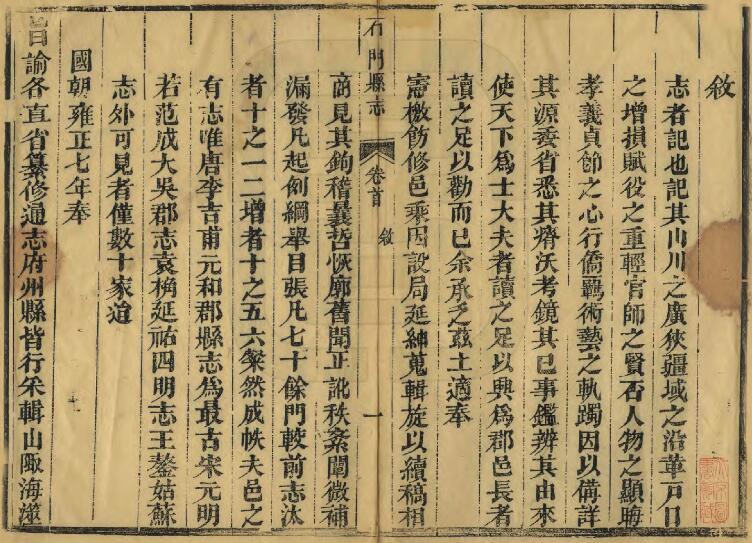 敘
志者記也記其山川之廣狹疆域之沿革戸口
之增損賦役之重輕官師之賢否人物之顯晦
孝義貞節之心行僑羈術藝之軌躅因以備詳
其源委省悉其瘠沃考鏡其已事鑑辨其由來
使天下爲士大夫者讀之足以興爲郡邑長者
讀之足以勸而已余承乏兹土適奉
憲檄飭修邑乘因設局延紳蒐輯旋以續稿相
石門縣志
卷首
敘
一
商見其鉤稽曩哲恢廓舊聞正訛秩紊闡微補
漏發凡起例綱舉目張凡七十餘門較前志汰
者十之一二增者十之五六粲然成帙夫邑之
有志唯唐李吉甫元和郡縣志爲最古宋元明
若范成大吳郡志袁桷延祐四明志王鏊姑蘇
志外可見者僅數十家迨
國朝雍正七年奉
旨諭各直省纂修通志府州縣皆行采輯山陬海澨